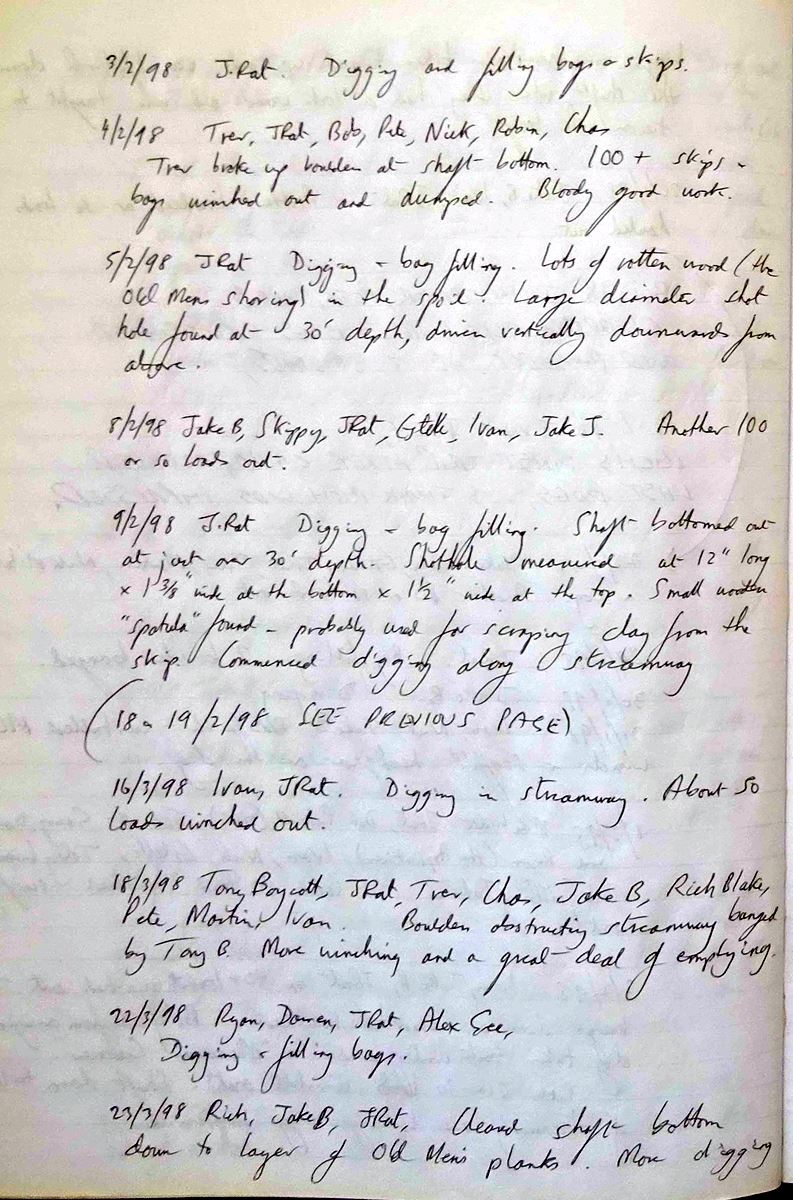 3/2/98 J.Rat. Digging and filling bags & skips.
4/2/98 Trev, JRat, Bob, Pete, Nick, Robin, Chas
Trev broke up boulders at shaft bottom. 100 + skips &
bags winched out and dumped. Bloody good work.
5/2/98 JRat Digging & bag filling. Lots of rotten wood (the
Old Mens shoring) in the spoil. Large diameter shot
hole found at 30' depth, driven vertically downwards from
above.
8/2/98 Jake B, Skippy, JRat, Estelle, Ivan, Jake J. Another 100
or so loads out.
9/2/98 J.Rat Digging & bag filling. Shaft bottomed out
at just over 30' depth. Shothole measured at 12" long
x 1 3/8" wide at the bottom x 1 1/2" wide at the top. Small wooden
"spatula" found - probably used for scraping clay from the
skip. Commenced digging along streamway
(18 & 19/2/98 SEE PREVIOUS PAGE)
16/3/98 Ivan, JRat. Digging in streamway. About 50
loads winched out.
18/3/98 Tony Boycott, JRat, Trev, Chas, Jake B, Rich Blake,
Pete, Martin, Ivan. Boulders obstructing streamway banged
by Tony B. More winching and a great deal of emptying.
22/3/98 Ryan, Darren, JRat, Alex Gee,
Digging & filling bags.
23/3/98 Rich, Jake B, JRat, Cleared shaft bottom
down to layer of Old Men's planks. More digging